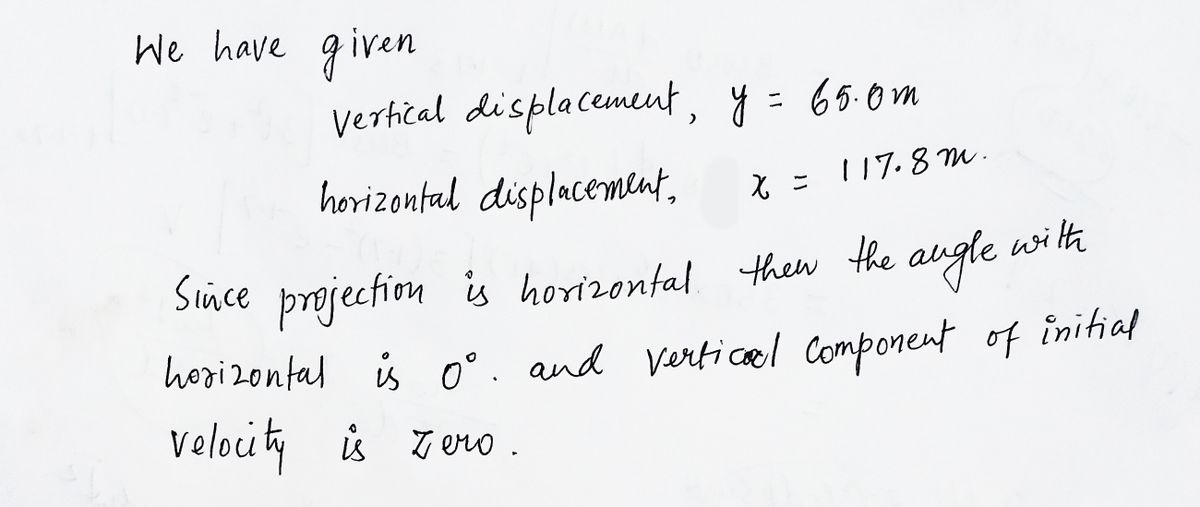 We have given
vertical displacement, y = 65.0 m
horizontal displacement, x = 117.8 m.
Since projection is horizontal then the angle with
horizontal is 0°. and vertical component of initial
velocity is zero.